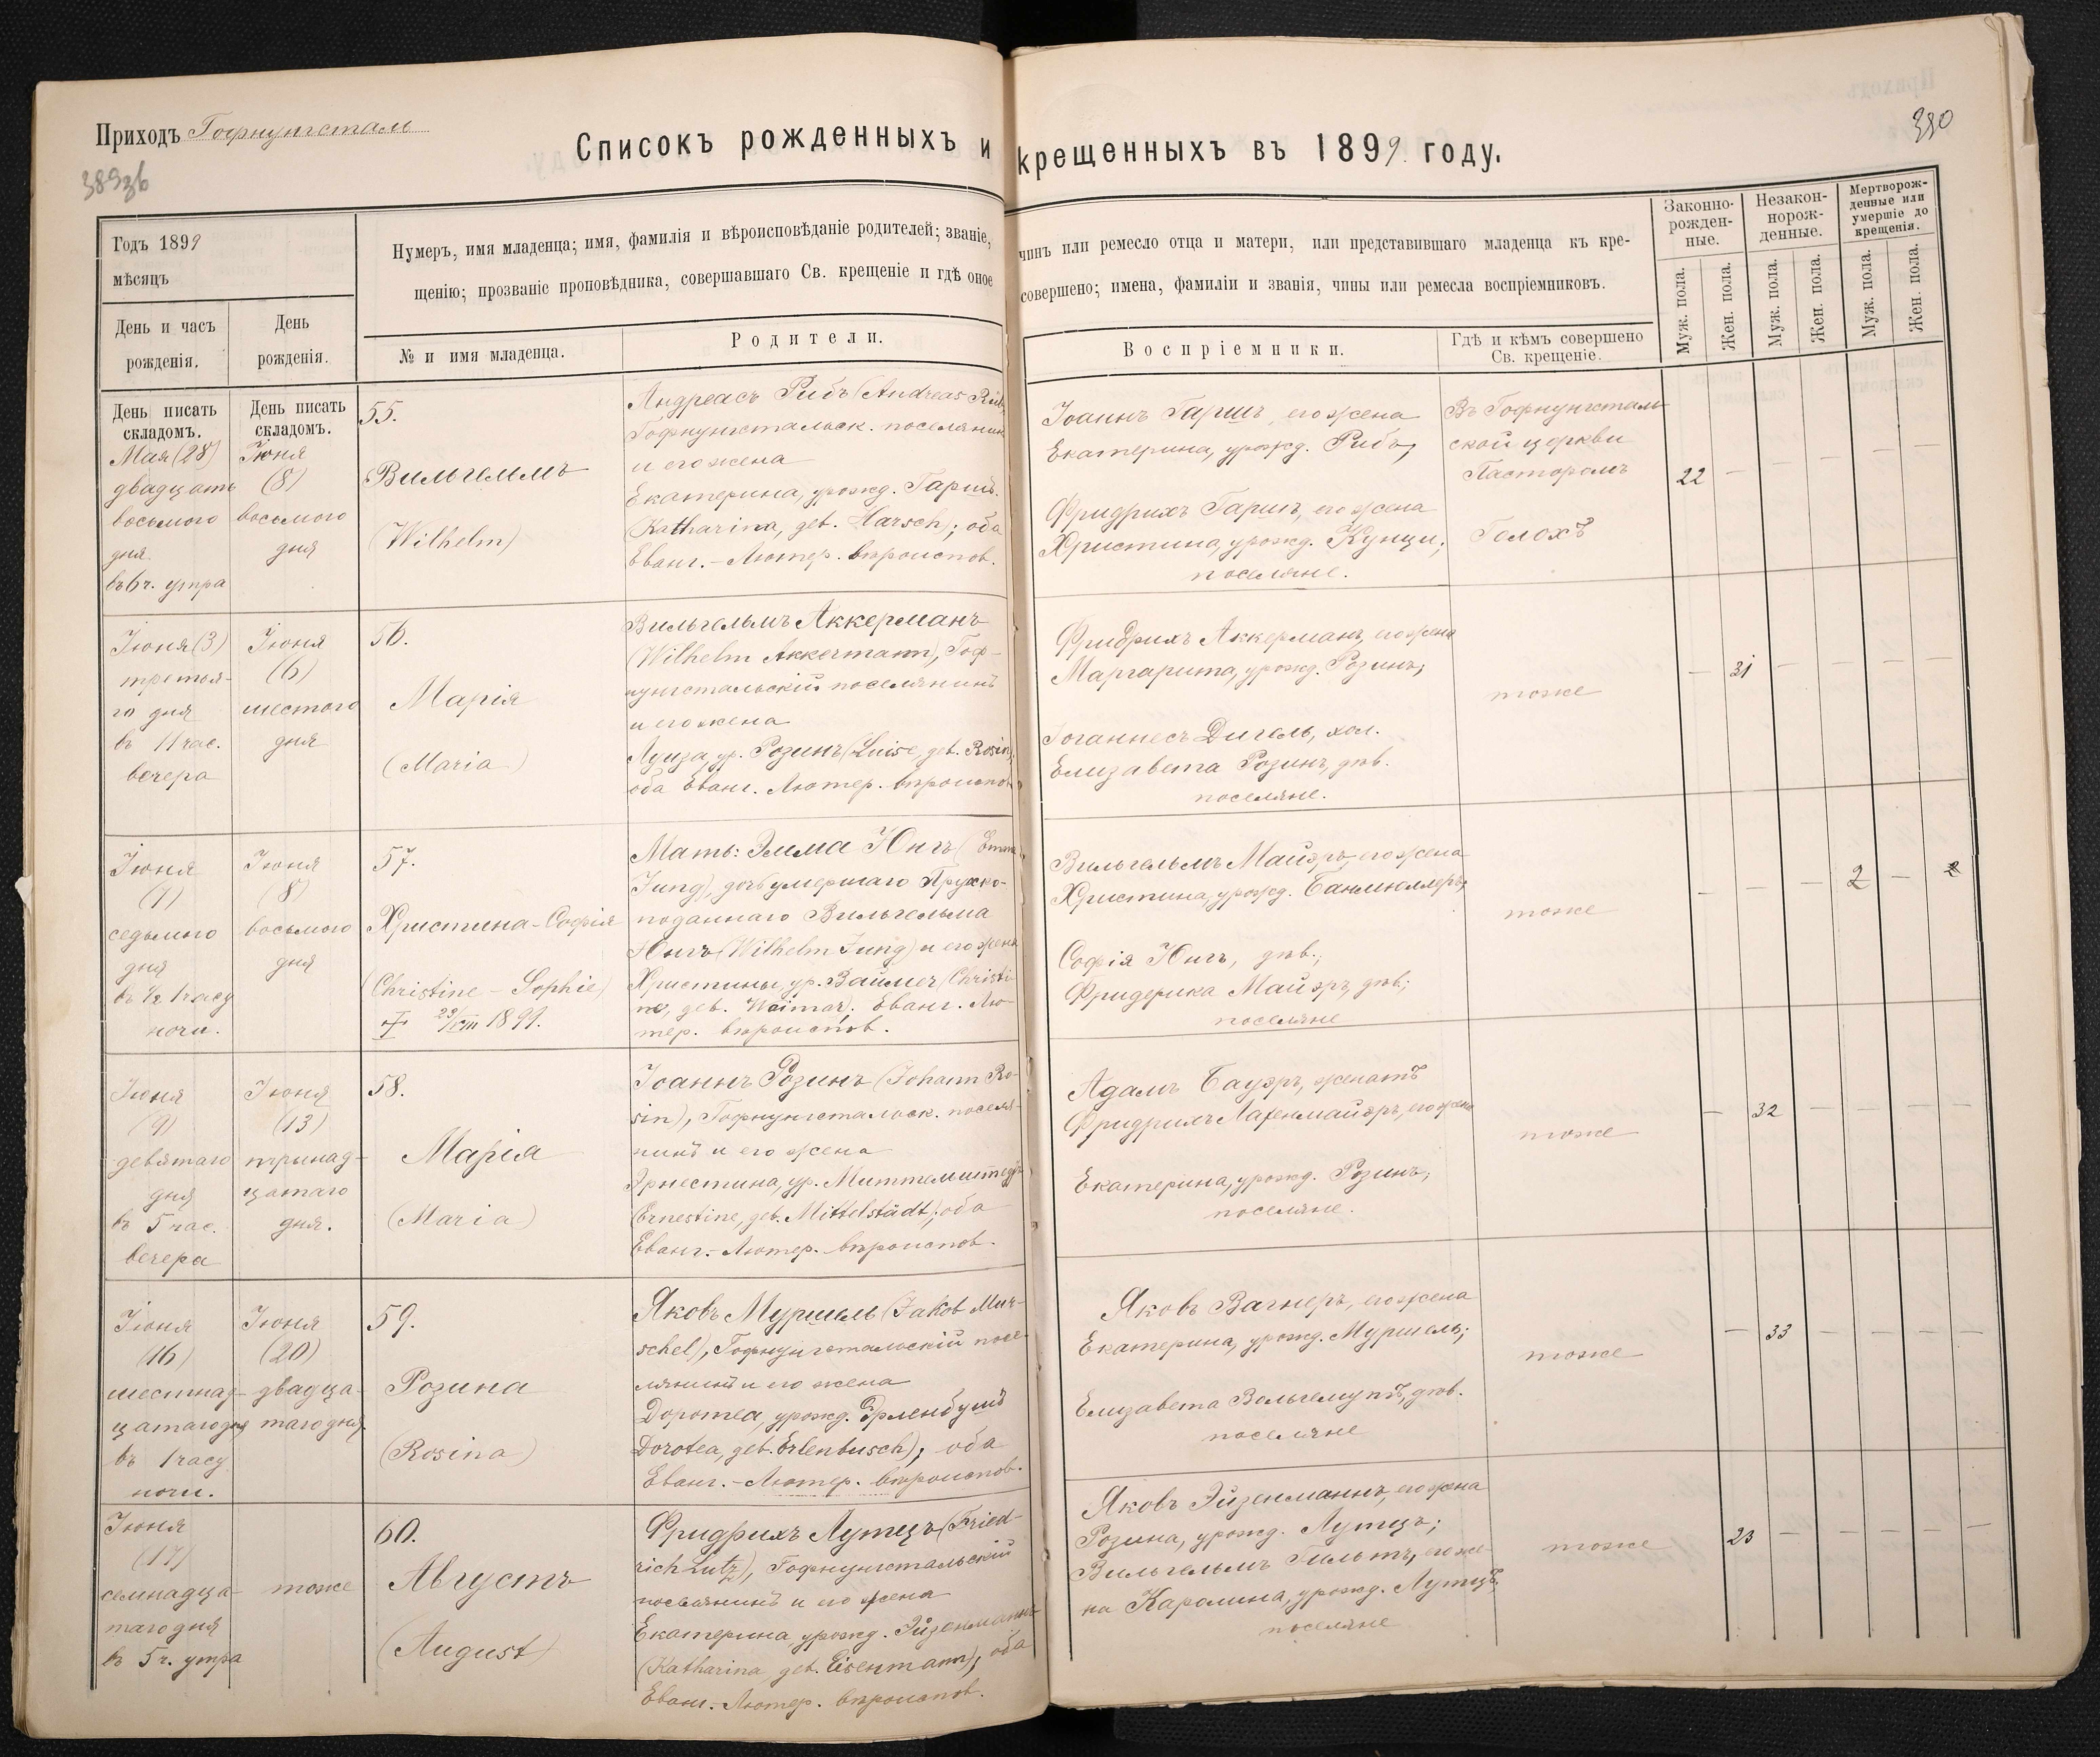 Приходъ Гофнунгсталь
389зв
390
Списокъ рожденныхъ и крещенныхъ въ 1899 году.
Годъ 1899
мѣсяцъ
День и часъ
рожденія.
День
рожденія.
Нумеръ, имя младенца; имя, фамилія и вѣроисповѣданіе родителей; званіе, чинъ или ремесло отца и матери, или представившаго младенца къ кре-
щенію; прозваніе проповѣдника, совершавшаго Св. крещеніе и гдѣ оное совершено; имена, фамиліи и званія, чины или ремесла воспріемниковъ.
№ и имя младенца.
Родители.
Воспріемники.
Гдѣ и кѣмъ совершено
Св. крещеніе.
Законно-
рожден-
ные.
Незакон-
норож-
денные.
Мертворож-
денные или
умершіе до
крещенія.
Муж. пола.
Жен. пола.
Муж. пола.
Жен. пола.
Муж. пола.
Жен. пола.
День писать
складомъ.
Мая (28)
двадцать
восьмого
дня
въ 6 ч. утра
День писать
складомъ.
Іюня
(8)
восьмого
дня
55.
Вильгельмъ
(Wilhelm)
Андреасъ Рибъ (Andreas Rieb
Гофнунгстальск. поселянин
и его жена
Екатерина, урожд. Гаршъ.
(Katharina, geb. Harsch); оба
Еванг.-Лютер. вѣроиспов.
Іоаннъ Гаршъ, его жена
Екатерина, урожд. Рибъ;
Фридрихъ Гаршъ, его жена
Христина, урожд. Кунци;
поселяне.
Въ Гофнунгсталь-
ской церкви
Пасторомъ
Голохъ
22 — — — — —
Іюня (3)
третья-
го дня
въ 11 час.
вечера
Іюня
(6)
шестого
дня
56.
Марія
(Maria)
Вильгельмъ Аккерманъ
(Wilhelm Akkermann), Гоф-
нунгстальскій поселянинъ
и его жена
Луиза, ур. Розинъ (Luise, geb. Rosin);
оба Еванг. Лютер. вѣроиспов.
Фридрихъ Аккерманъ, его жена
Маргарита, урожд. Розинъ;
Іоганнесъ Дигель, хол.
Елизавета Розинъ, дѣв.
поселяне.
тоже
— 31 — — —
Іюня
(7)
седьмого
дня
въ 1/2 1 часу
ночи.
Іюня
(8)
восьмого
дня
57.
Христина-Софія
(Christine - Sophie)
† 29/VIII 1899.
Мать: Эмма Юнгъ (Emma
Jung), дочь умершаго Прусско-
подданнаго Вильгельма
Юнгъ (Wilhelm Jung) и его жены
Христины, ур. Ваймеръ (Christi-
ne, geb. Weimar). Еванг. Лю-
тер. вѣроиспов.
Вильгельмъ Майэръ, его жена
Христина, урожд. Банмюллеръ;
Софія Юнгъ, дѣв.;
Фридерика Майэръ, дѣв;
поселяне
тоже
— — — 2 —
Іюня
(9)
девятаго
дня
въ 5 час.
вечера
Іюня
(13)
тринад-
цатаго
дня.
58.
Марія
(Maria)
Іоаннъ Розинъ (Johann Ro-
sin), Гофнунгстальск. поселя-
нинъ и его жена
Эрнестина, ур. Миттелштедтъ
(Ernestine, geb. Mittelstädt); оба
Еванг.-Лютер. вѣроиспов.
Адамъ Бауэръ, женатъ
Фридрихъ Лахенмайэръ, его жена
Екатерина, урожд. Розинъ;
поселяне.
тоже
— 32 — — — —
Іюня
(16)
шестнад-
цатаго дня
въ 1 часу
ночи.
Іюня
(20)
двадца-
таго дня.
59.
Розина
(Rosina)
Яковъ Муршель (Jakob Mur-
schel), Гофнунгстальскій посе-
лянинъ и его жена
Доротеа, урожд. Эрленбушъ
Dorotea, geb. Erlenbusch); оба
Еванг.-Лютер. вѣроиспов.
Яковъ Вагнеръ, его жена
Екатерина, урожд. Муршель;
Елизавета Вольгемутъ, дѣв.
поселяне
тоже
— 33 — — — —
Іюня
(17)
семнадца-
таго дня
въ 5 ч. утра
тоже
60.
Августъ
(August)
Фридрихъ Лутцъ (Fried-
rich Lutz), Гофнунгстальскій
поселянинъ и его жена
Екатерина, урожд. Эйзенманнъ
(Katharina, geb. Eisenmann), оба
Еванг.-Лютер. вѣроиспов.
Яковъ Эйзенманнъ, его жена
Розина, урожд. Лутцъ;
Вильгельмъ Гильтъ, его же-
на Каролина, урожд. Лутцъ;
поселяне
тоже
23 — — — — —